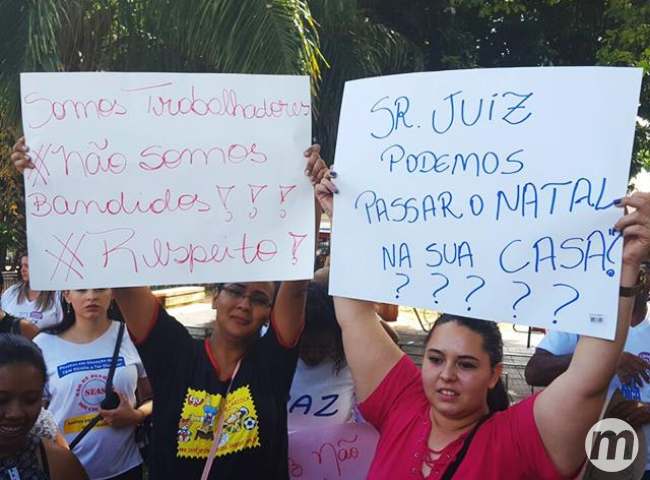 Somos Trabalhadores
#não somos
Bandidos!!!
#Respeito!
SR. JUIZ
PODEMOS
PASSAR O NATAL
NA SUA CASA?
????
SEAS
AZ
não
m